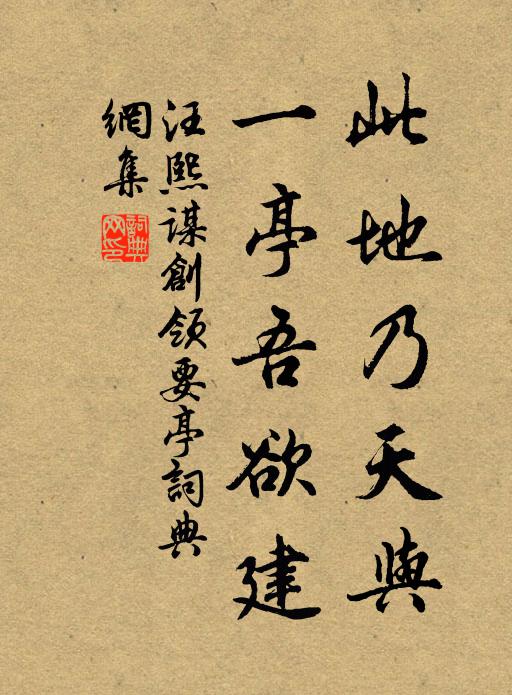 此地乃天與
一亭吾欲建
汪熙謀創領要亭詞典
網集
詞典
网印